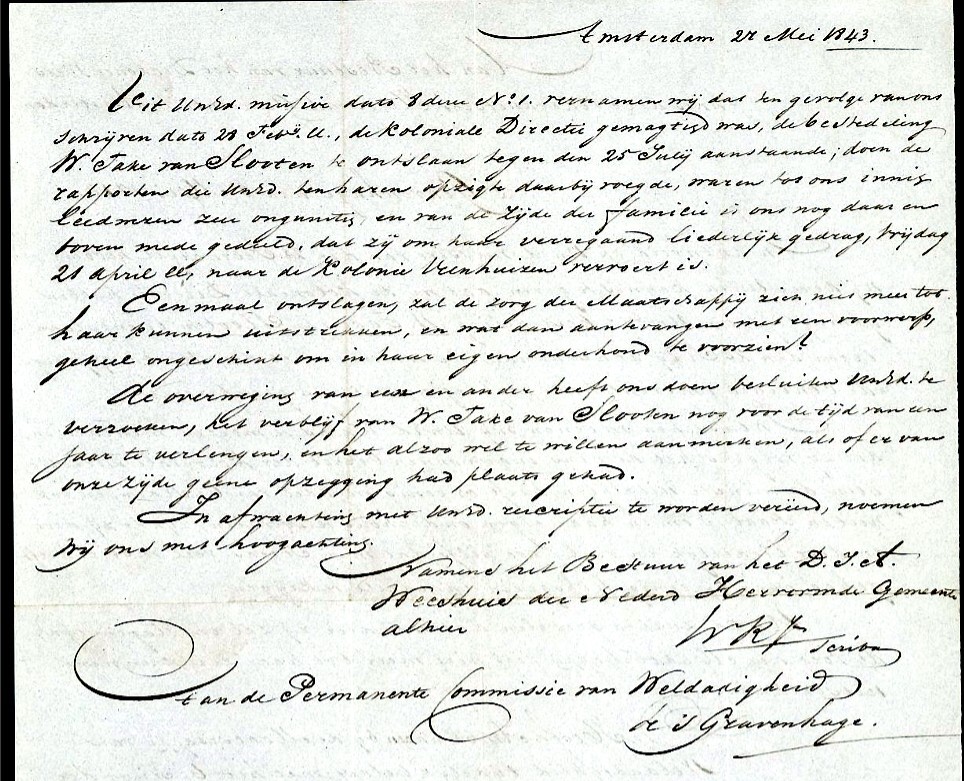 Amsterdam 27 Mei 1843.
Uit UwEd. missive dato 8 dezer No. 1. vernamen wij dat ten gevolge van ons
schrijven dato 28 Febr. ll., de koloniale Directie gemagtigd was, de besteedeling
W. Take van Slooten te ontslaan tegen den 25 Julij aanstaande; doen de
rapporten die UwEd. ten haren opzigte daarbij voegde, waren tot ons innig
leedwezen zeer ongunstig, en van de zijde der familie is ons nog daar en
boven mede gedeeld, dat zij om haar verregaand liederlijk gedrag, Vrijdag
21 April ll. naar de Kolonie Veenhuizen vervoert is.
Eenmaal ontslagen, zal de zorg der Maatschappij zich niet meer tot
haar kunnen uitstrekken, en wat dan aantevangen met een voorwerp,
geheel ongeschikt om in haar eigen onderhoud te voorzien?
De overweging van een en ander heeft ons doen besluiten UwEd. te
verzoeken, het verblijf van W. Take van Slooten nog voor de tijd van een
jaar te verlengen, en het alzoo wel te willen aanmerken, als of er van
onze zijde geene opzegging had plaats gehad.
In afwachting met UwEd. rescriptie te worden vereerd, noemen
wij ons met hoogachting.
Namens het Bestuur van het D. J. A.
Weeshuis der Nederd Hervormde Gemeente
alhier
Scriba
Aan de Permanente Commissie van Weldadigheid
te 's Gravenhage.